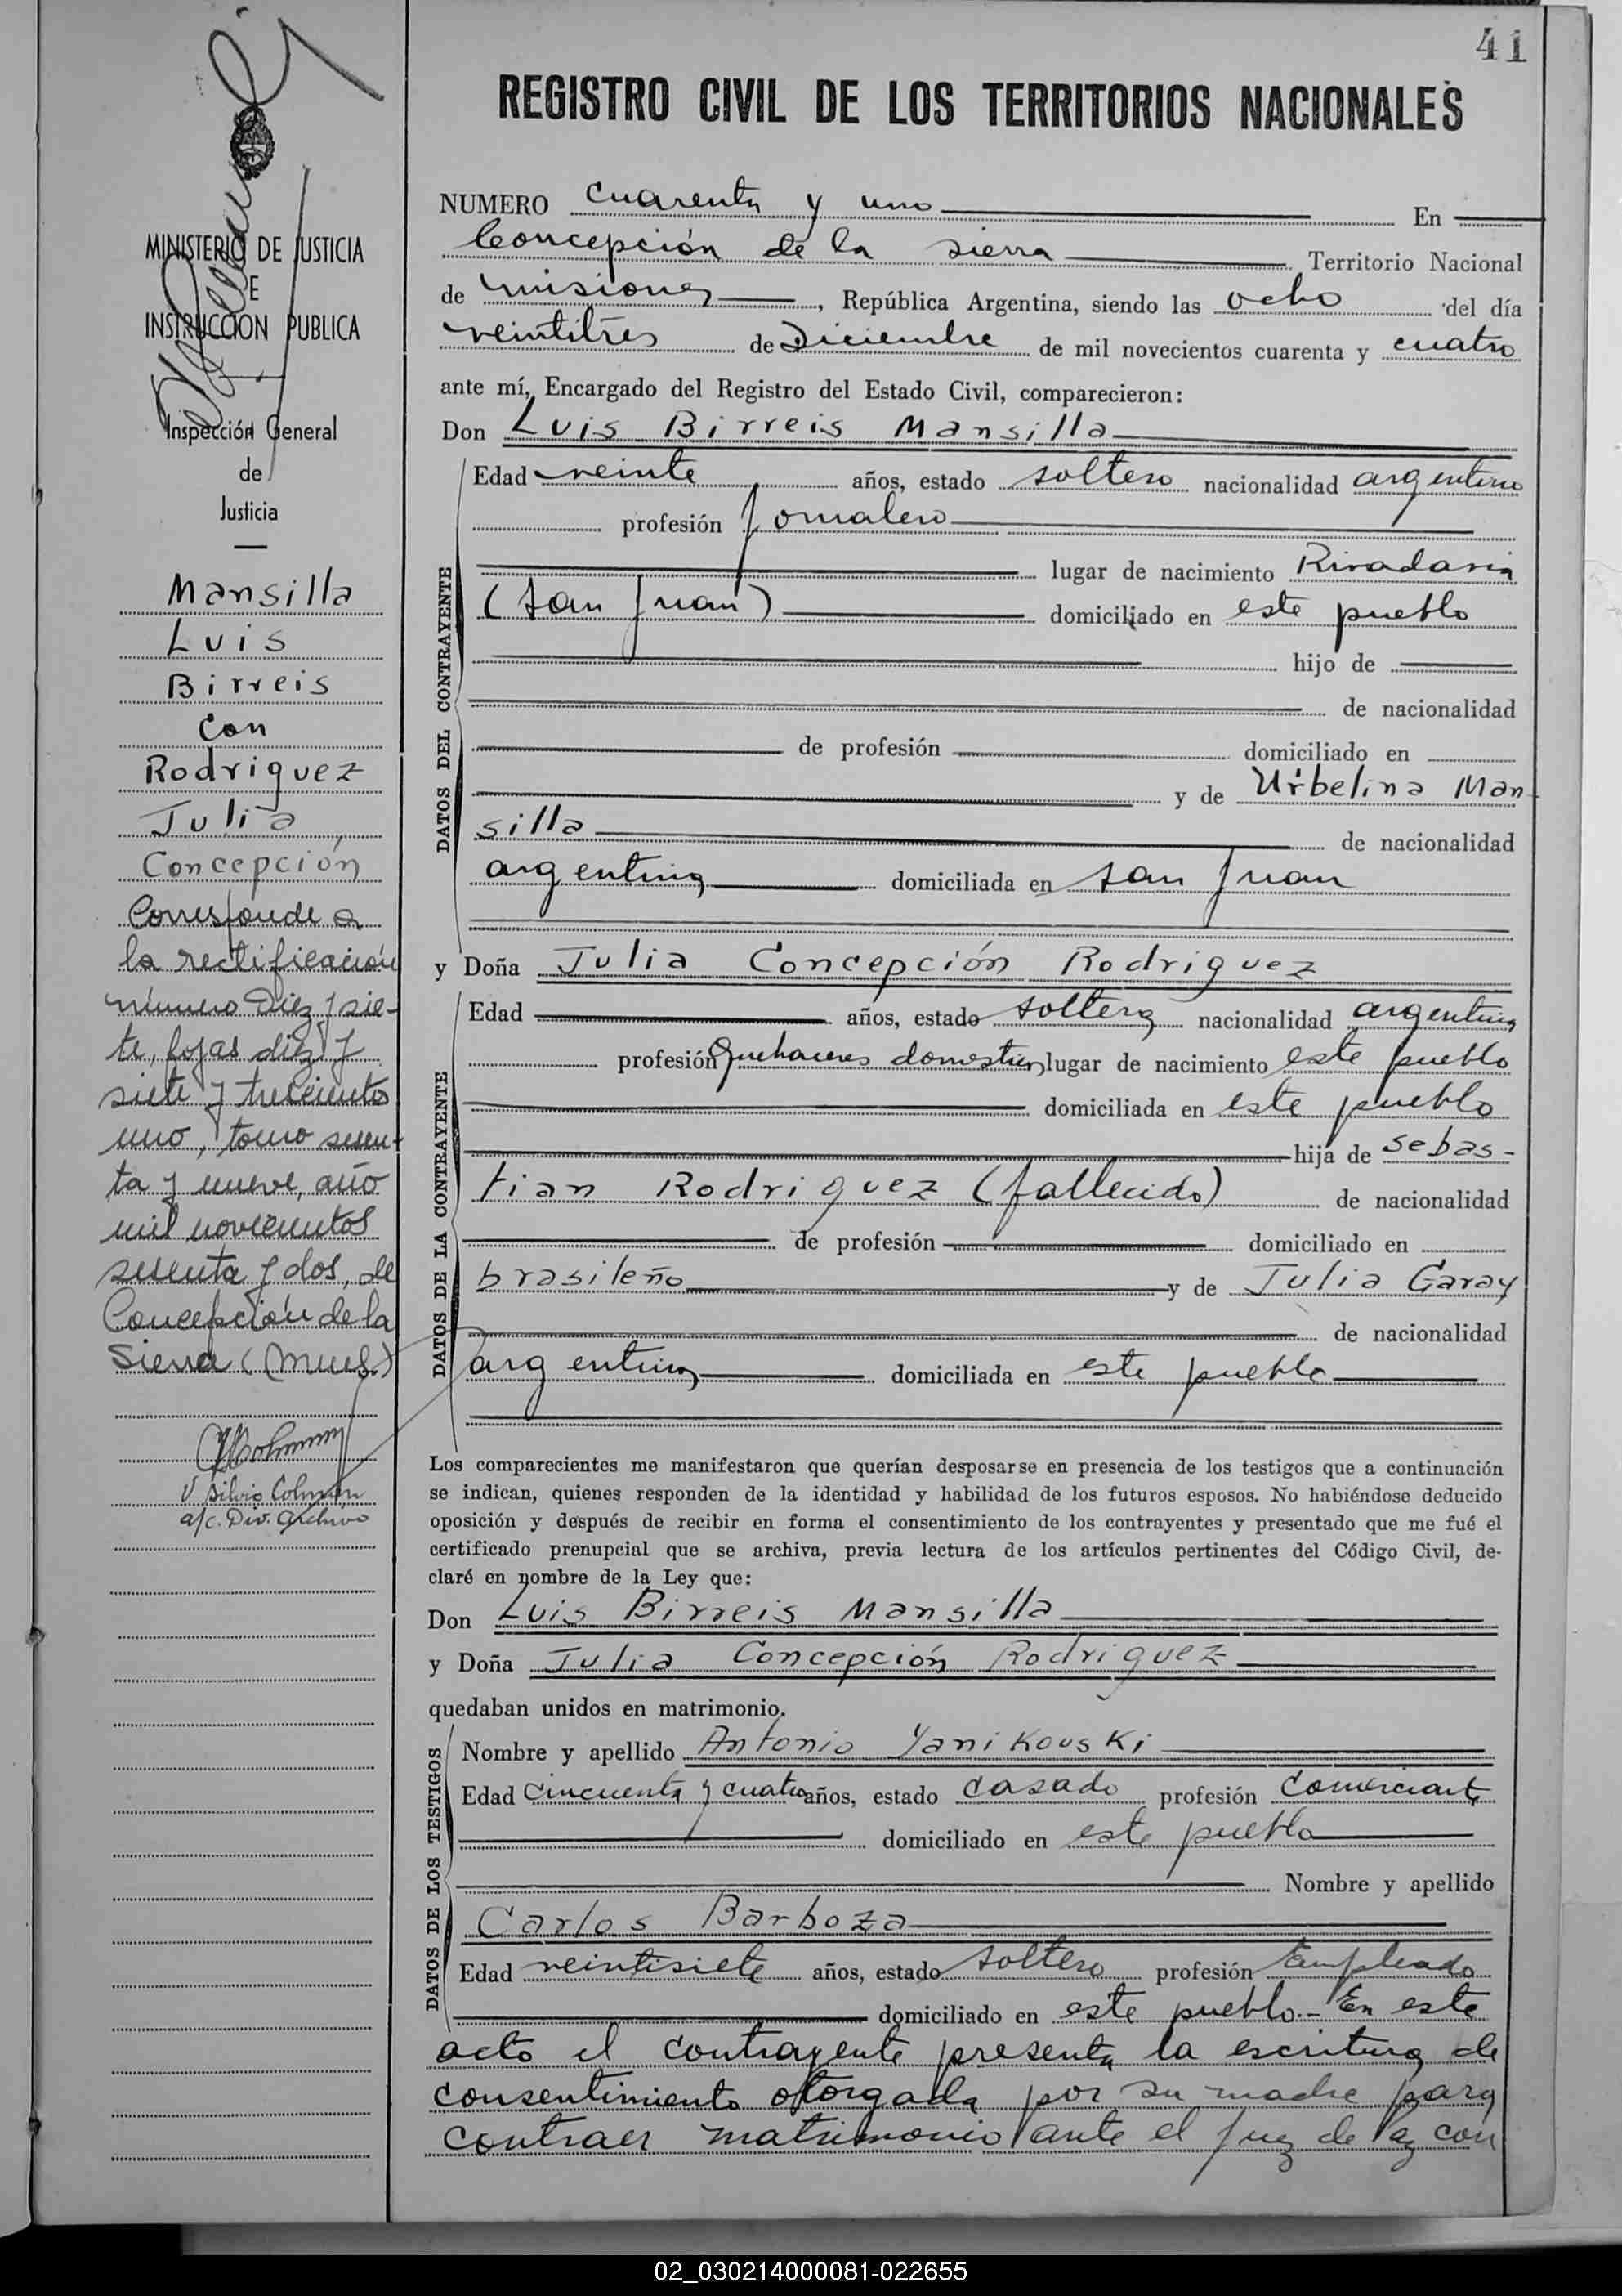 41
REGISTRO CIVIL DE LOS TERRITORIOS NACIONALES
MINISTERIO DE JUSTICIA
E
INSTRUCCION PUBLICA
Inspección General
de
Justicia
Mansilla
Luis
Birreis
con
Rodriguez
Julia
Concepción
Corresponde a
la rectificación
número Diez y sie-
te, fojas diez y
siete y trescientos
uno, tomo sesen-
ta y nueve, año
mil novecientos
sesenta y dos, de
Concepción de la
Sierra (Mnes.)
V Silvio Colmán
a/c. Div. Archivo
NUMERO cuarenta y uno En
Concepción de la sierra Territorio Nacional
de misiones, República Argentina, siendo las ocho del día
veintitres de Diciembre de mil novecientos cuarenta y cuatro
ante mí, Encargado del Registro del Estado Civil, comparecieron:
Don Luis Birreis Mansilla
DATOS DEL CONTRAYENTE
Edad veinte años, estado soltero nacionalidad argentino
profesión Jornalero
lugar de nacimiento Rivadavia
(San Juan) domiciliado en este pueblo
hijo de
de nacionalidad
de profesión domiciliado en
y de Urbelina Man-
silla de nacionalidad
argentina domiciliada en San Juan
y Doña Julia Concepción Rodriguez
DATOS DE LA CONTRAYENTE
Edad años, estado soltera nacionalidad argentina
profesión Quehaceres domesticos lugar de nacimiento este pueblo
domiciliada en este pueblo
hija de Sebas-
tian Rodriguez (fallecido) de nacionalidad
de profesión domiciliado en
brasileño y de Julia Garay
de nacionalidad
argentina domiciliada en este pueblo
Los comparecientes me manifestaron que querían desposarse en presencia de los testigos que a continuación
se indican, quienes responden de la identidad y habilidad de los futuros esposos. No habiéndose deducido
oposición y después de recibir en forma el consentimiento de los contrayentes y presentado que me fué el
certificado prenupcial que se archiva, previa lectura de los artículos pertinentes del Código Civil, de-
claré en nombre de la Ley que:
Don Luis Birreis Mansilla
y Doña Julia Concepción Rodriguez
quedaban unidos en matrimonio.
DATOS DE LOS TESTIGOS
Nombre y apellido Antonio Yanikouski
Edad Cincuenta y cuatro años, estado casado profesión Comerciante
domiciliado en este pueblo
Nombre y apellido
Carlos Barboza
Edad veintisiete años, estado soltero profesión Empleado
domiciliado en este pueblo.- En este
acto el contrayente presenta la escritura de
consentimiento otorgada por su madre para
contraer matrimonio ante el Juez de Paz con
02_030214000081-022655